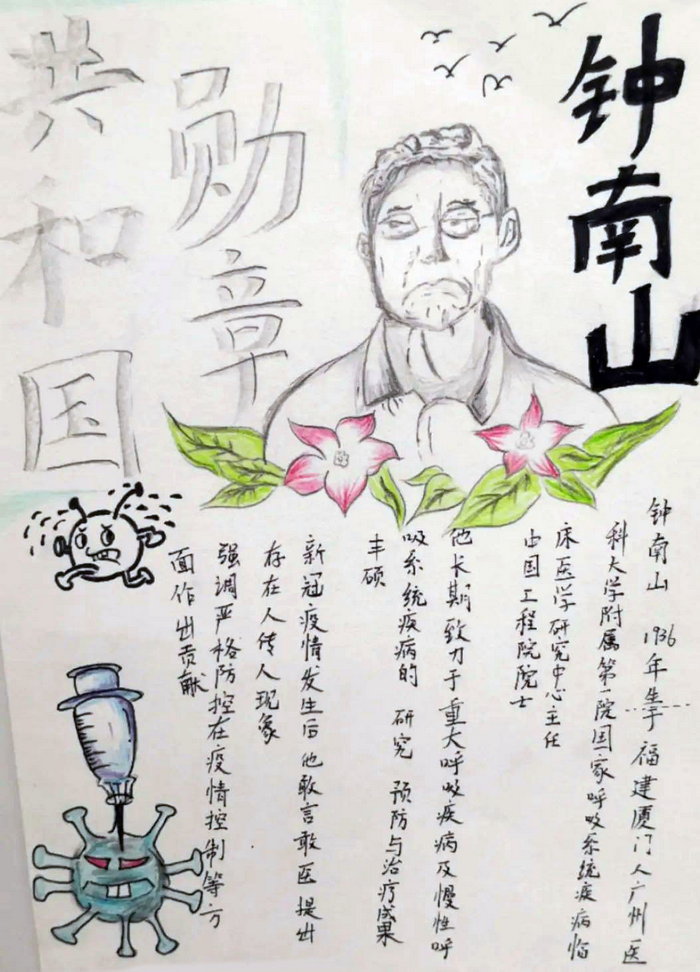 钟南山
共和国
勋章
钟南山 1936年生于福建厦门人广州医
科大学附属第一院国家呼吸系统疾病临
床医学研究中心主任
中国工程院院士
他长期致力于重大呼吸疾病及慢性呼
吸系统疾病的 研究 预防与治疗成果
丰硕
新冠疫情发生后他敢言敢医提出
存在人传人现象
强调严格防控在疫情控制等方
面作出贡献